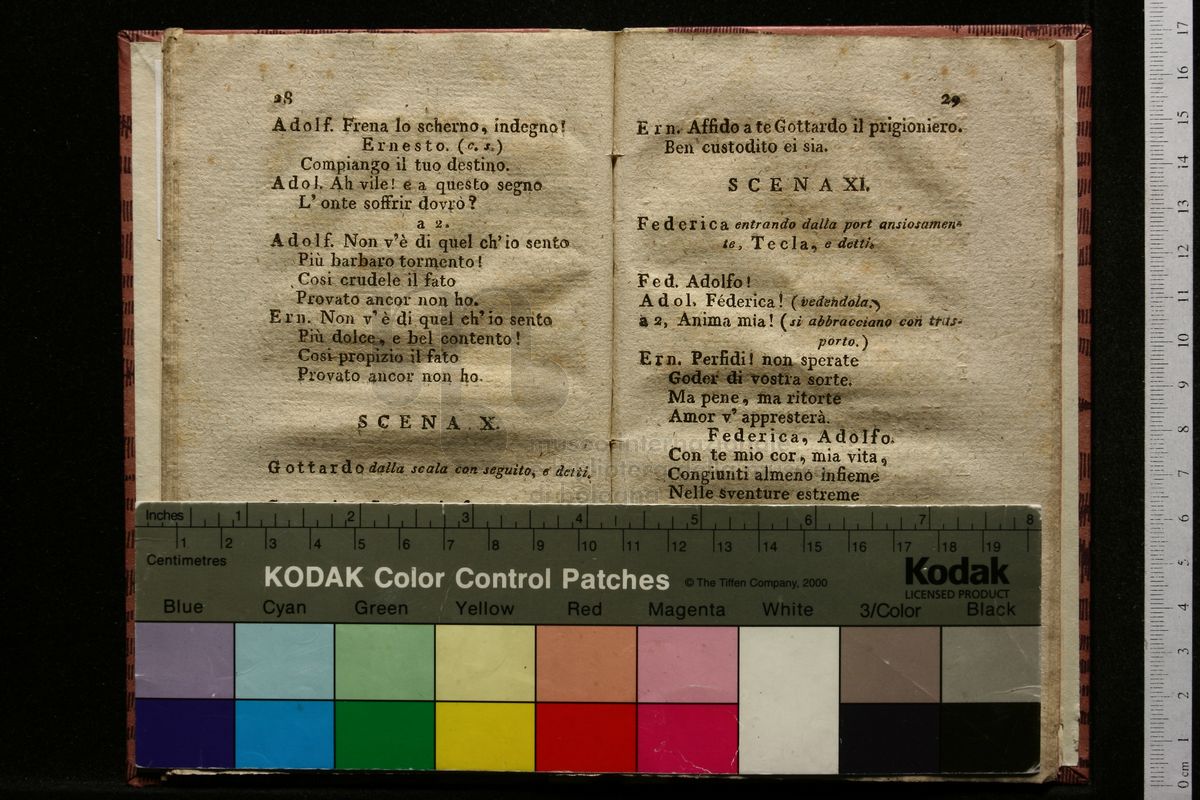 28
Adolf. Frena lo scherno, indegno!
Ernesto. (c. s.)
Compiango il tuo destino.
Adol. Ah vile! e a questo segno
L' onte soffrir dovrò?
a 2.
Adolf. Non v'è di quel ch'io sento
Più barbaro tormento!
Così crudele il fato
Provato ancor non ho.
Ern. Non v'è di quel ch'io sento
Più dolce, e bel contento!
Così propizio il fato
Provato ancor non ho.
SCENA X.
Gottardo dalla scala con seguito, e detti.
29
Ern. Affido a te Gottardo il prigioniero.
Ben custodito ei sia.
SCENA XI.
Federica entrando dalla port ansiosamen-
te, Tecla, e detti.
Fed. Adolfo!
Adol. Féderica! (vedendola.)
a 2, Anima mia! (si abbracciano con tras-
porto.)
Ern. Perfidi! non sperate
Goder di vostra sorte.
Ma pene, ma ritorte
Amor v' appresterà.
Federica, Adolfo.
Con te mio cor, mia vita,
Congiunti almeno insieme
Nelle sventure estreme
museo internazionale
di bologna
Inches 1 2 3 4 5 6 7 8
1 2 3 4 5 6 7 8 9 10 11 12 13 14 15 16 17 18 19
Centimetres
KODAK Color Control Patches © The Tiffen Company, 2000
Kodak
LICENSED PRODUCT
Blue Cyan Green Yellow Red Magenta White 3/Color Black
17 16 15 14 13 12 11 10 9 8 7 6 5 4 3 2 1 0 cm